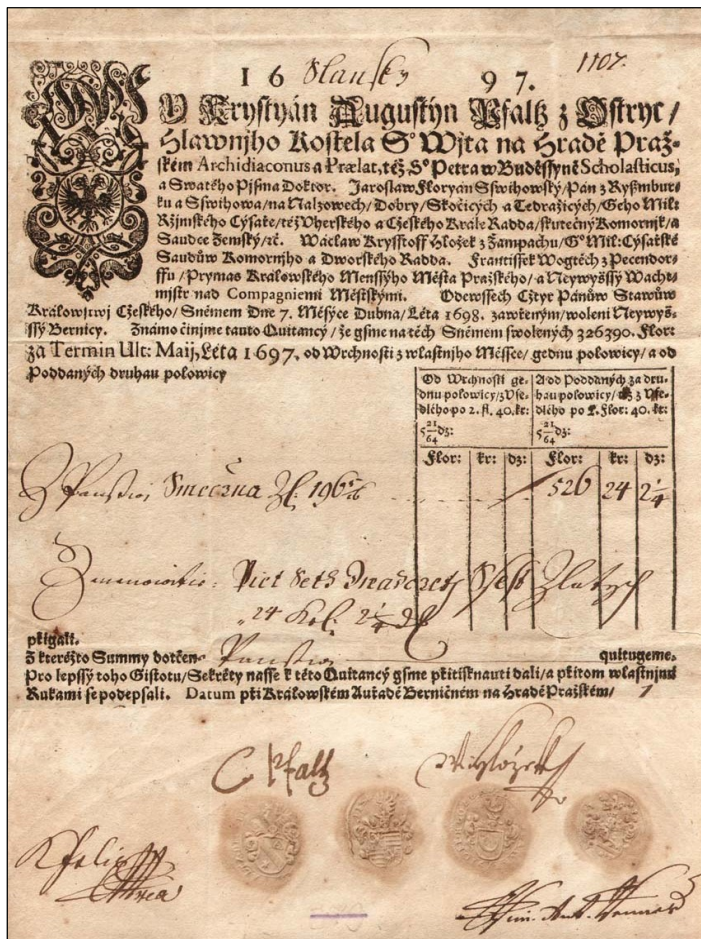 16 Slansky 97. 1107.
MY Krystyán Augustyn Pfaltz z Ostryc/
Hlawnjho Kostela S° Wjta na Hradě Praž-
ském Archidiaconus a Prælat, též S° Petra w Buděssyně Scholasticus,
a Swatého Pjsma Doktor. Jaroslaw Floryan Sswihowský/ Pán z Ryžmbur-
ku a Sswihowa/ na Nalžowech/ Dobry/ Skočicých a Tedražicých/ Geho Mil:
Ržjmského Cýsaře/ též Vherského a Cžeského Krále Radda/ skutečný Komornjk/ a
Saudce Zemský/ ꝛc. Wáclaw Krysstoff Hložek z Žampachu/ G° Mil: Cýsařské
Saudůw Komornjho a Dworského Radda. Frantissek Wogtěch z Pecendor-
ffu/ Prymas Králowského Menssýho Města Pražského/ a Neywyšssý Wacht-
mistr nad Compagniemi Městskými. Ode wssech Cžtyr Pánůw Stawůw
Králowstwj Cžeského/ Sněmem Dne 7. Měsýce Dubna/ Léta 1698. zawřeným/ woleni Neywyš-
ssý Bernicy. Známo činjme tauto Quitancý/ že gsme na těch Sněmem swolených 326390. Flor:
za Termin Ult: Maij, Léta 1697. od Wrchnosti z wlastnjho Měssce/ gednu polowicy/ a od
Poddaných druhau polowicy
Od Wrchnosti ge- A od Poddaných za dru-
dnu polowicy/ z Vse- hau polowicy/ též z Vse-
dlého po 2. fl. 40. kr: dlého po 2. Flor: 40. kr:
5 21/64 dz: 5 21/64 dz:
Flor: kr: dz: Flor: kr: dz:
Z Panstwj Smečna 526 24 2¼
Piet Seth Dwadczety Ssest Zlatych
24 2¼
přigali.
Z kteréžto Summy dotčen- Panstwj quitugeme.
Pro lepssý toho Gistotu/ Sekréty nasse k této Quitancý gsme přitisknauti dali/ a přitom wlastnjma
Rukami se podepsali. Datum při Králowském Auřadě Berničném na Hradě Pražském/
C Pfaltz W Hložek